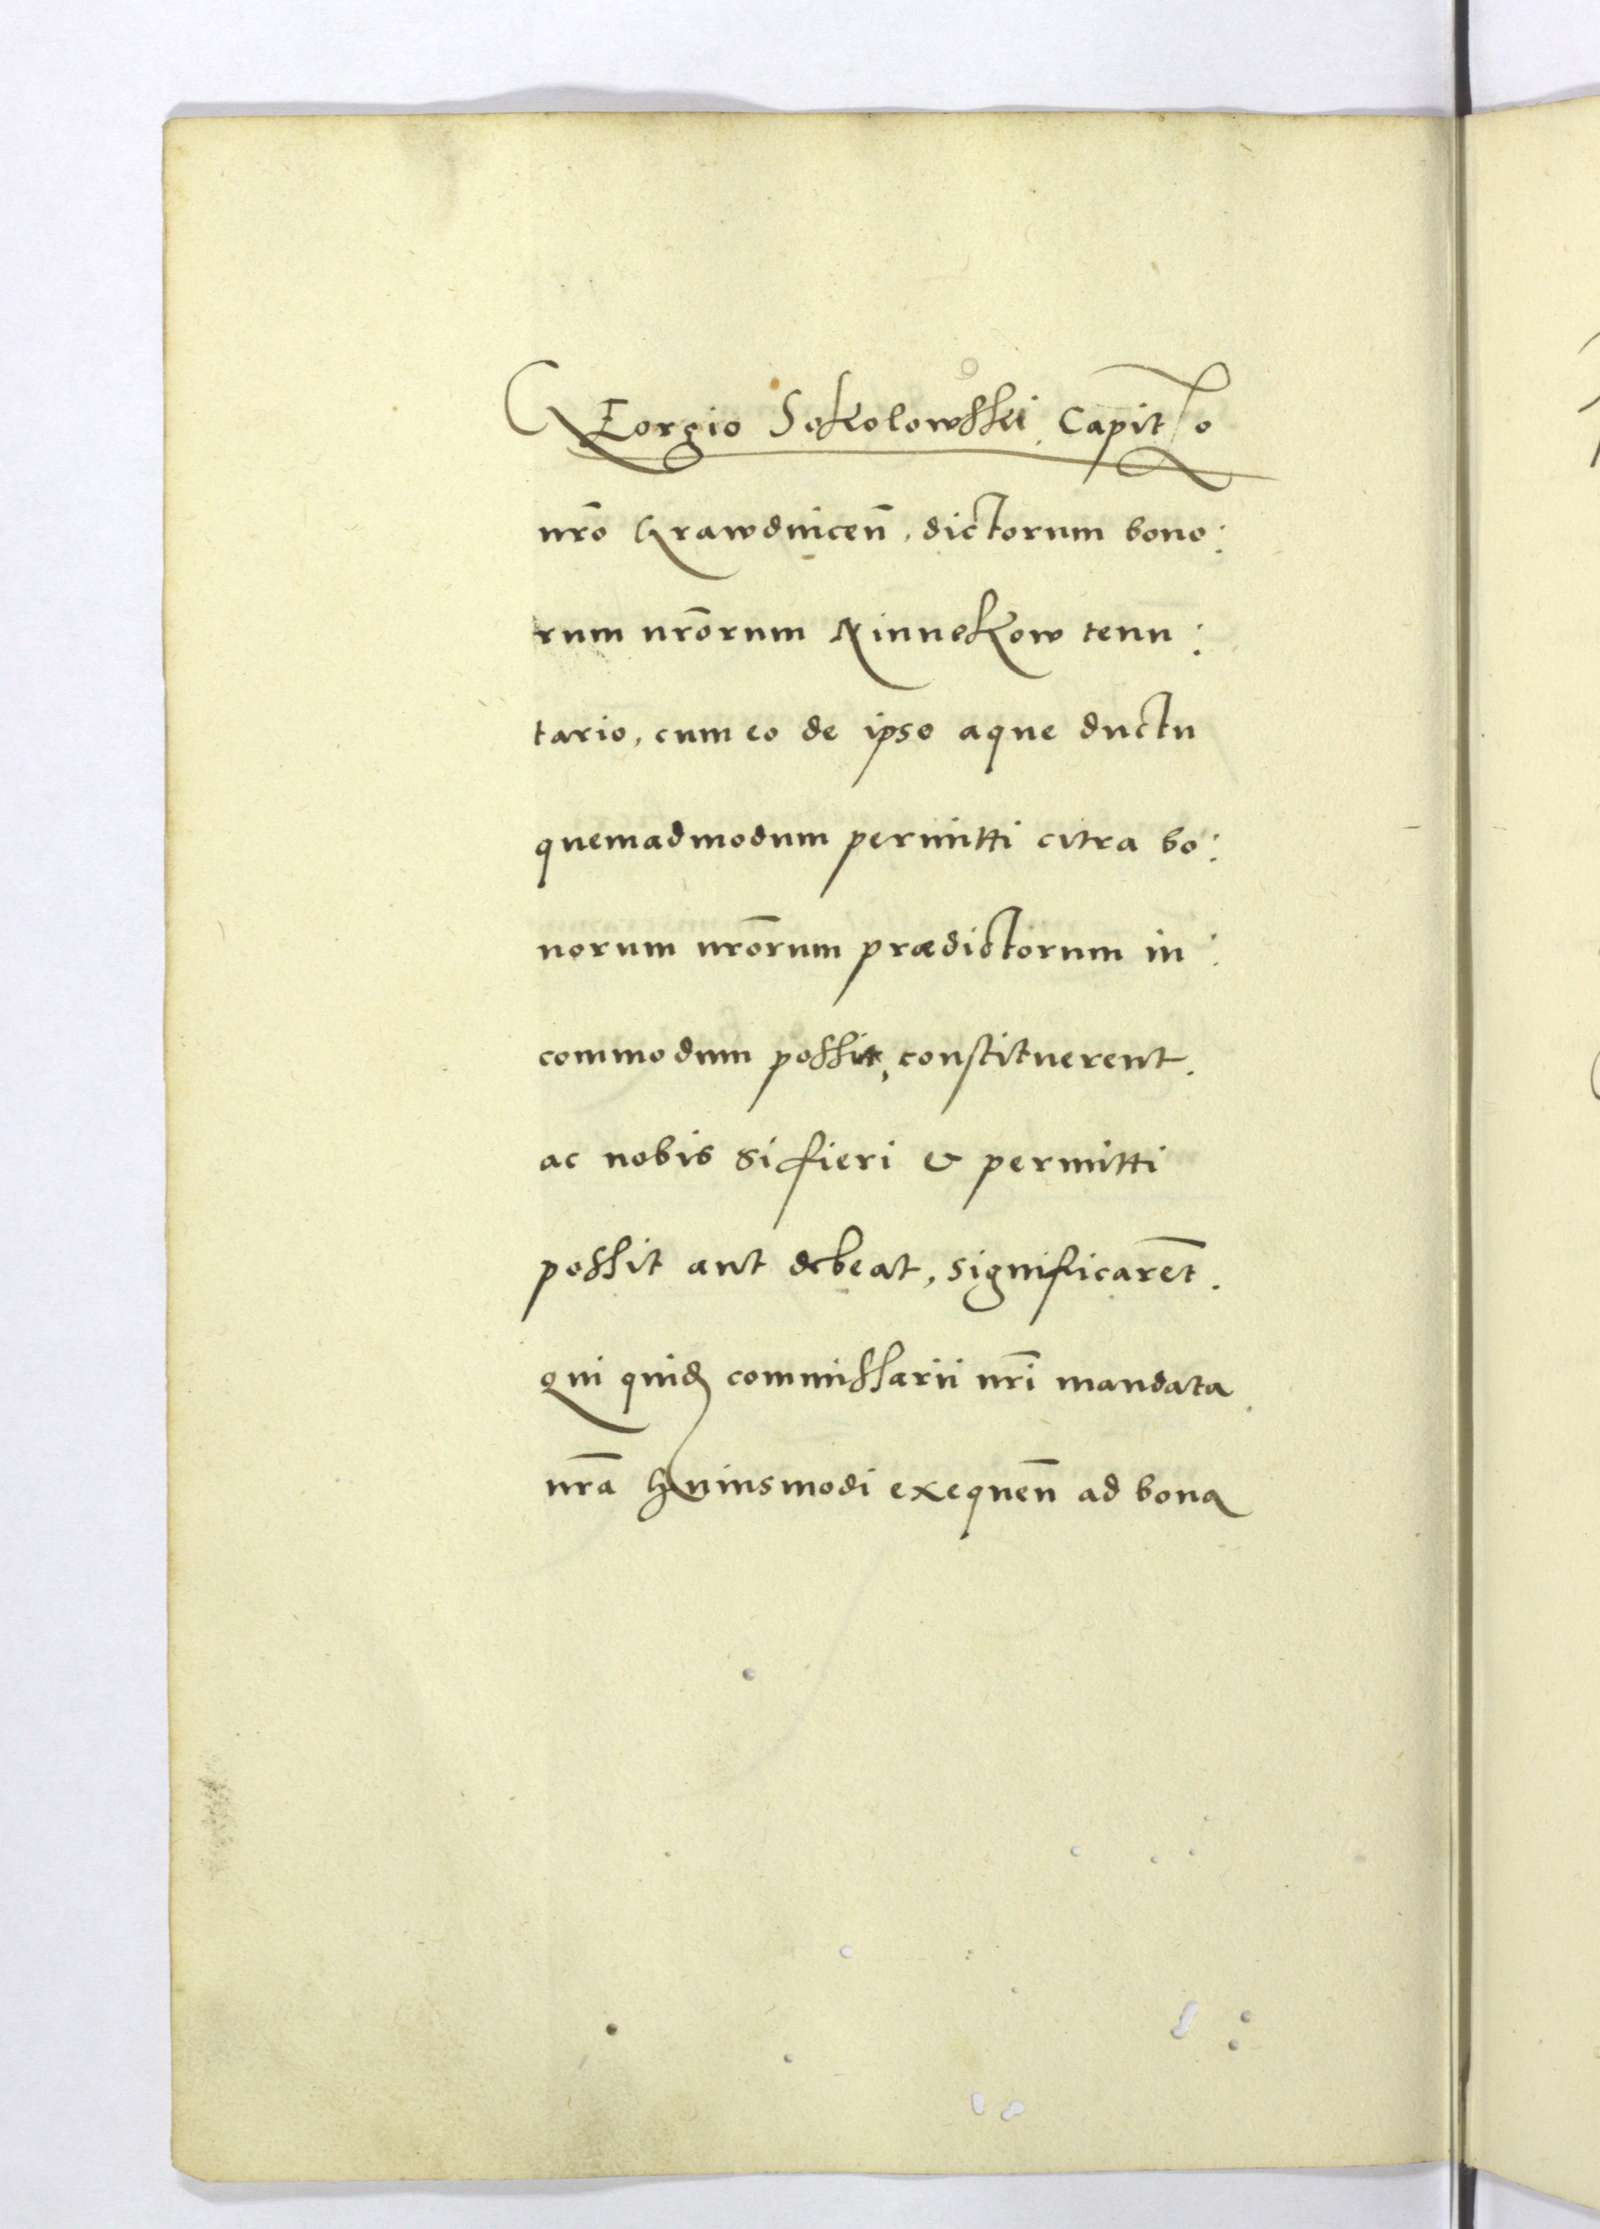 GEorgio Sokolowsski Capitlo
nr̃o Grawdnicen̄, dictorum bono:
rum nr̃orum Ninnekow tenu:
tario, cum eo de ipso aque ductu
quemadmodum permitti citra bo:
norum nr̃orum prædictorum in:
commodum possit, constituerent.
ac nobis si fieri & permitti
possit aut debeat, significarēt.
Qui quidẽ commissarii nr̃i mandata
nr̃a huiusmodi exequen̄ ad bona